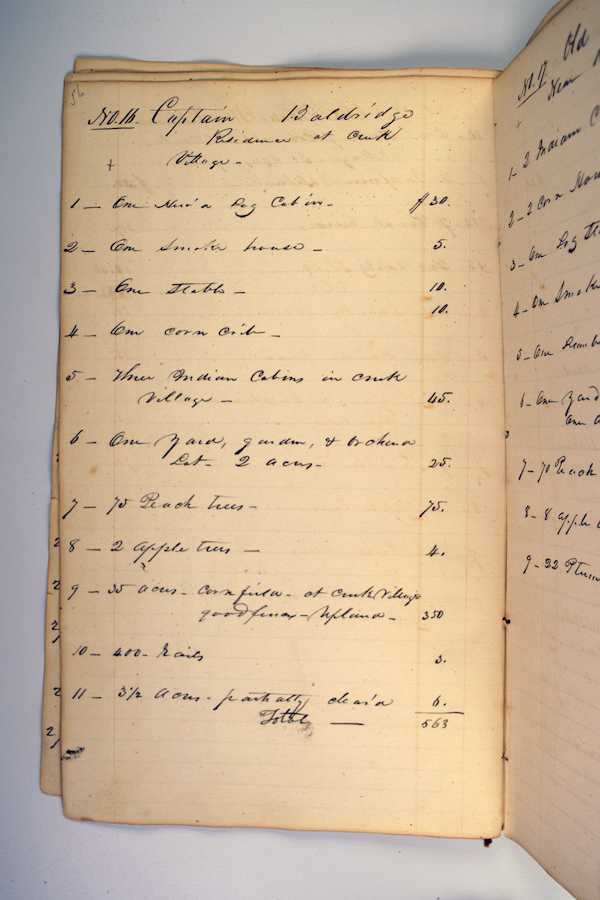 56
No. 16. Captain Baldridge
Residence at Creek
Village -
+
1 - One Hew'd Log Cabin - $30.
2 - One Smoke house - 5.
3 - One Stable - 10.
10.
4 - One corn crib -
5 - Three Indian Cabins in creek
Village - 45.
6 - One Yard, garden, & Orchard
Lot - 2 acres - 25.
7 - 75 Peach trees - 75.
8 - 2 apple trees - 4.
9 - 35 acres - Cornfield - at Creek Village
good fence - Upland - 350
10 - 400 - Rails 3.
11 - 3 1/2 acres - partially clear'd 6.
Total — 563
No. 9. Old
Near
1 - 2 Indian C
2 - 2 Corn Hou
3 - One Log Sta
4 - One Smoke
5 - One
6 - One Yard
One
7 - 70 Peach
8 - 8 apple
9 - 32 Plum